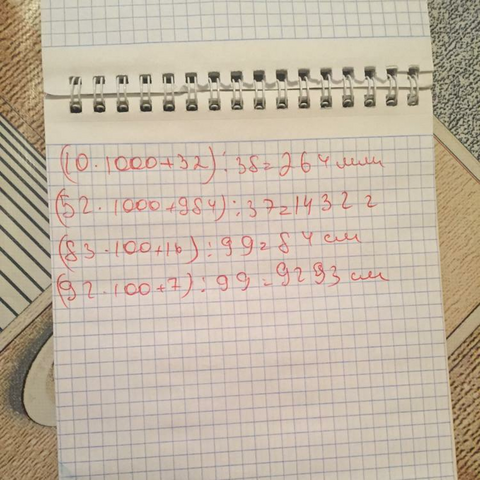 (10·1000+32):38=264 мм
(52·1000+984):37=1432 г
(83·100+16):99=84 см
(92·100+7):99=9293 см